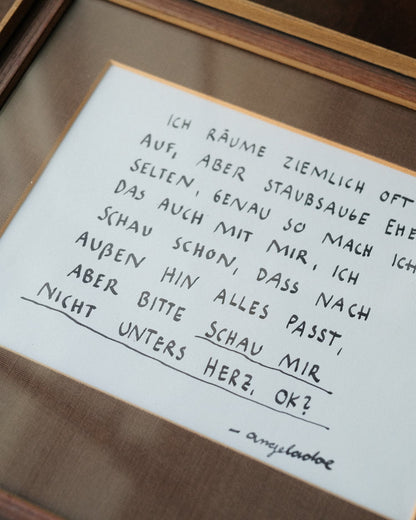 ICH RÄUME ZIEMLICH OFT
AUF, ABER STAUBSAUGE EHE
SELTEN, GENAU SO MACH ICH
DAS AUCH MIT MIR, ICH
SCHAU SCHON, DASS NACH
AUßEN HIN ALLES PASST,
ABER BITTE SCHAU MIR
NICHT UNTERS HERZ, OK?
- angeladoe